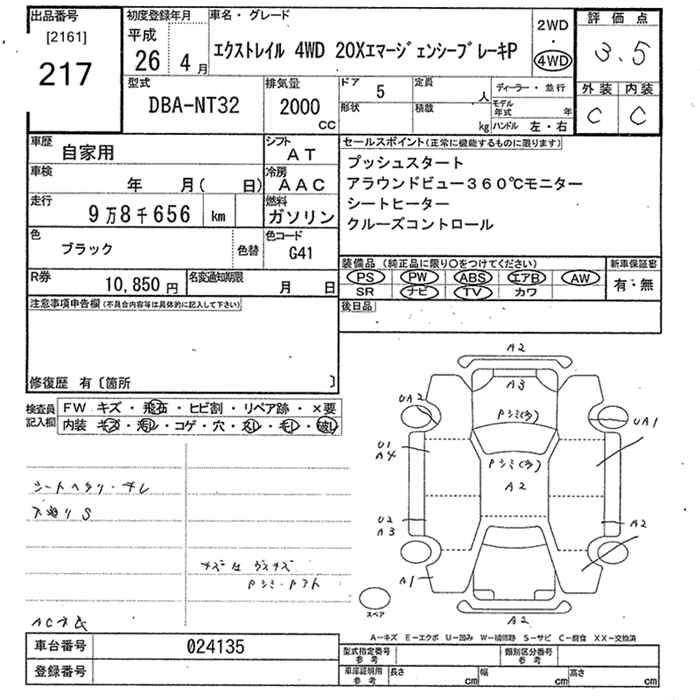 出品番号 初度登録年月 車名・グレード 2WD 評価点
[2161] 平成 ・
217 26 4月 エクストレイル 4WD 20XエマージェンシーブレーキP 4WD 3.5
型式 排気量 ドア 5 定員 人 ディーラー・並行 外装 内装
DBA-NT32 2000 cc 形状 積載 kg モデル年式 年 C C
ハンドル 左・右
車歴 自家用 シフト AT セールスポイント(正常に機能するものに限ります)
車検 年 月( 日) 冷房 AAC プッシュスタート
走行 9万8千656 km 燃料 ガソリン アラウンドビュー360℃モニター
シートヒーター
クルーズコントロール
色 ブラック 色替 色コード G41
装備品(純正品に限り○をつけてください) 新車保証書
R券 10,850円 名変通知期限 月 日 PS PW ABS エアB AW 有・無
SR ナビ TV カワ
注意事項申告欄(不具合内容等は具体的に記入して下さい) 後日品
修復歴 有〔箇所 〕
検査員記入欄 FW キズ・飛石・ヒビ割・リペア跡・×要
内装 キズ・汚れ・コゲ・穴・スレ・キレ・破レ
A2
A3
UA2 Pシミ(多) UA1
U1
A4 Pシミ(多)
A2
U2
A3 A2
A1
A2
スペア
A-キズ E-エクボ U-凹み W-補修跡 S-サビ C-腐食 XX-交換済
車台番号 024135 型式指定番号 参考 類別区分番号 参考
登録番号 車庫証明用 参考 長さ cm 幅 cm 高さ cm